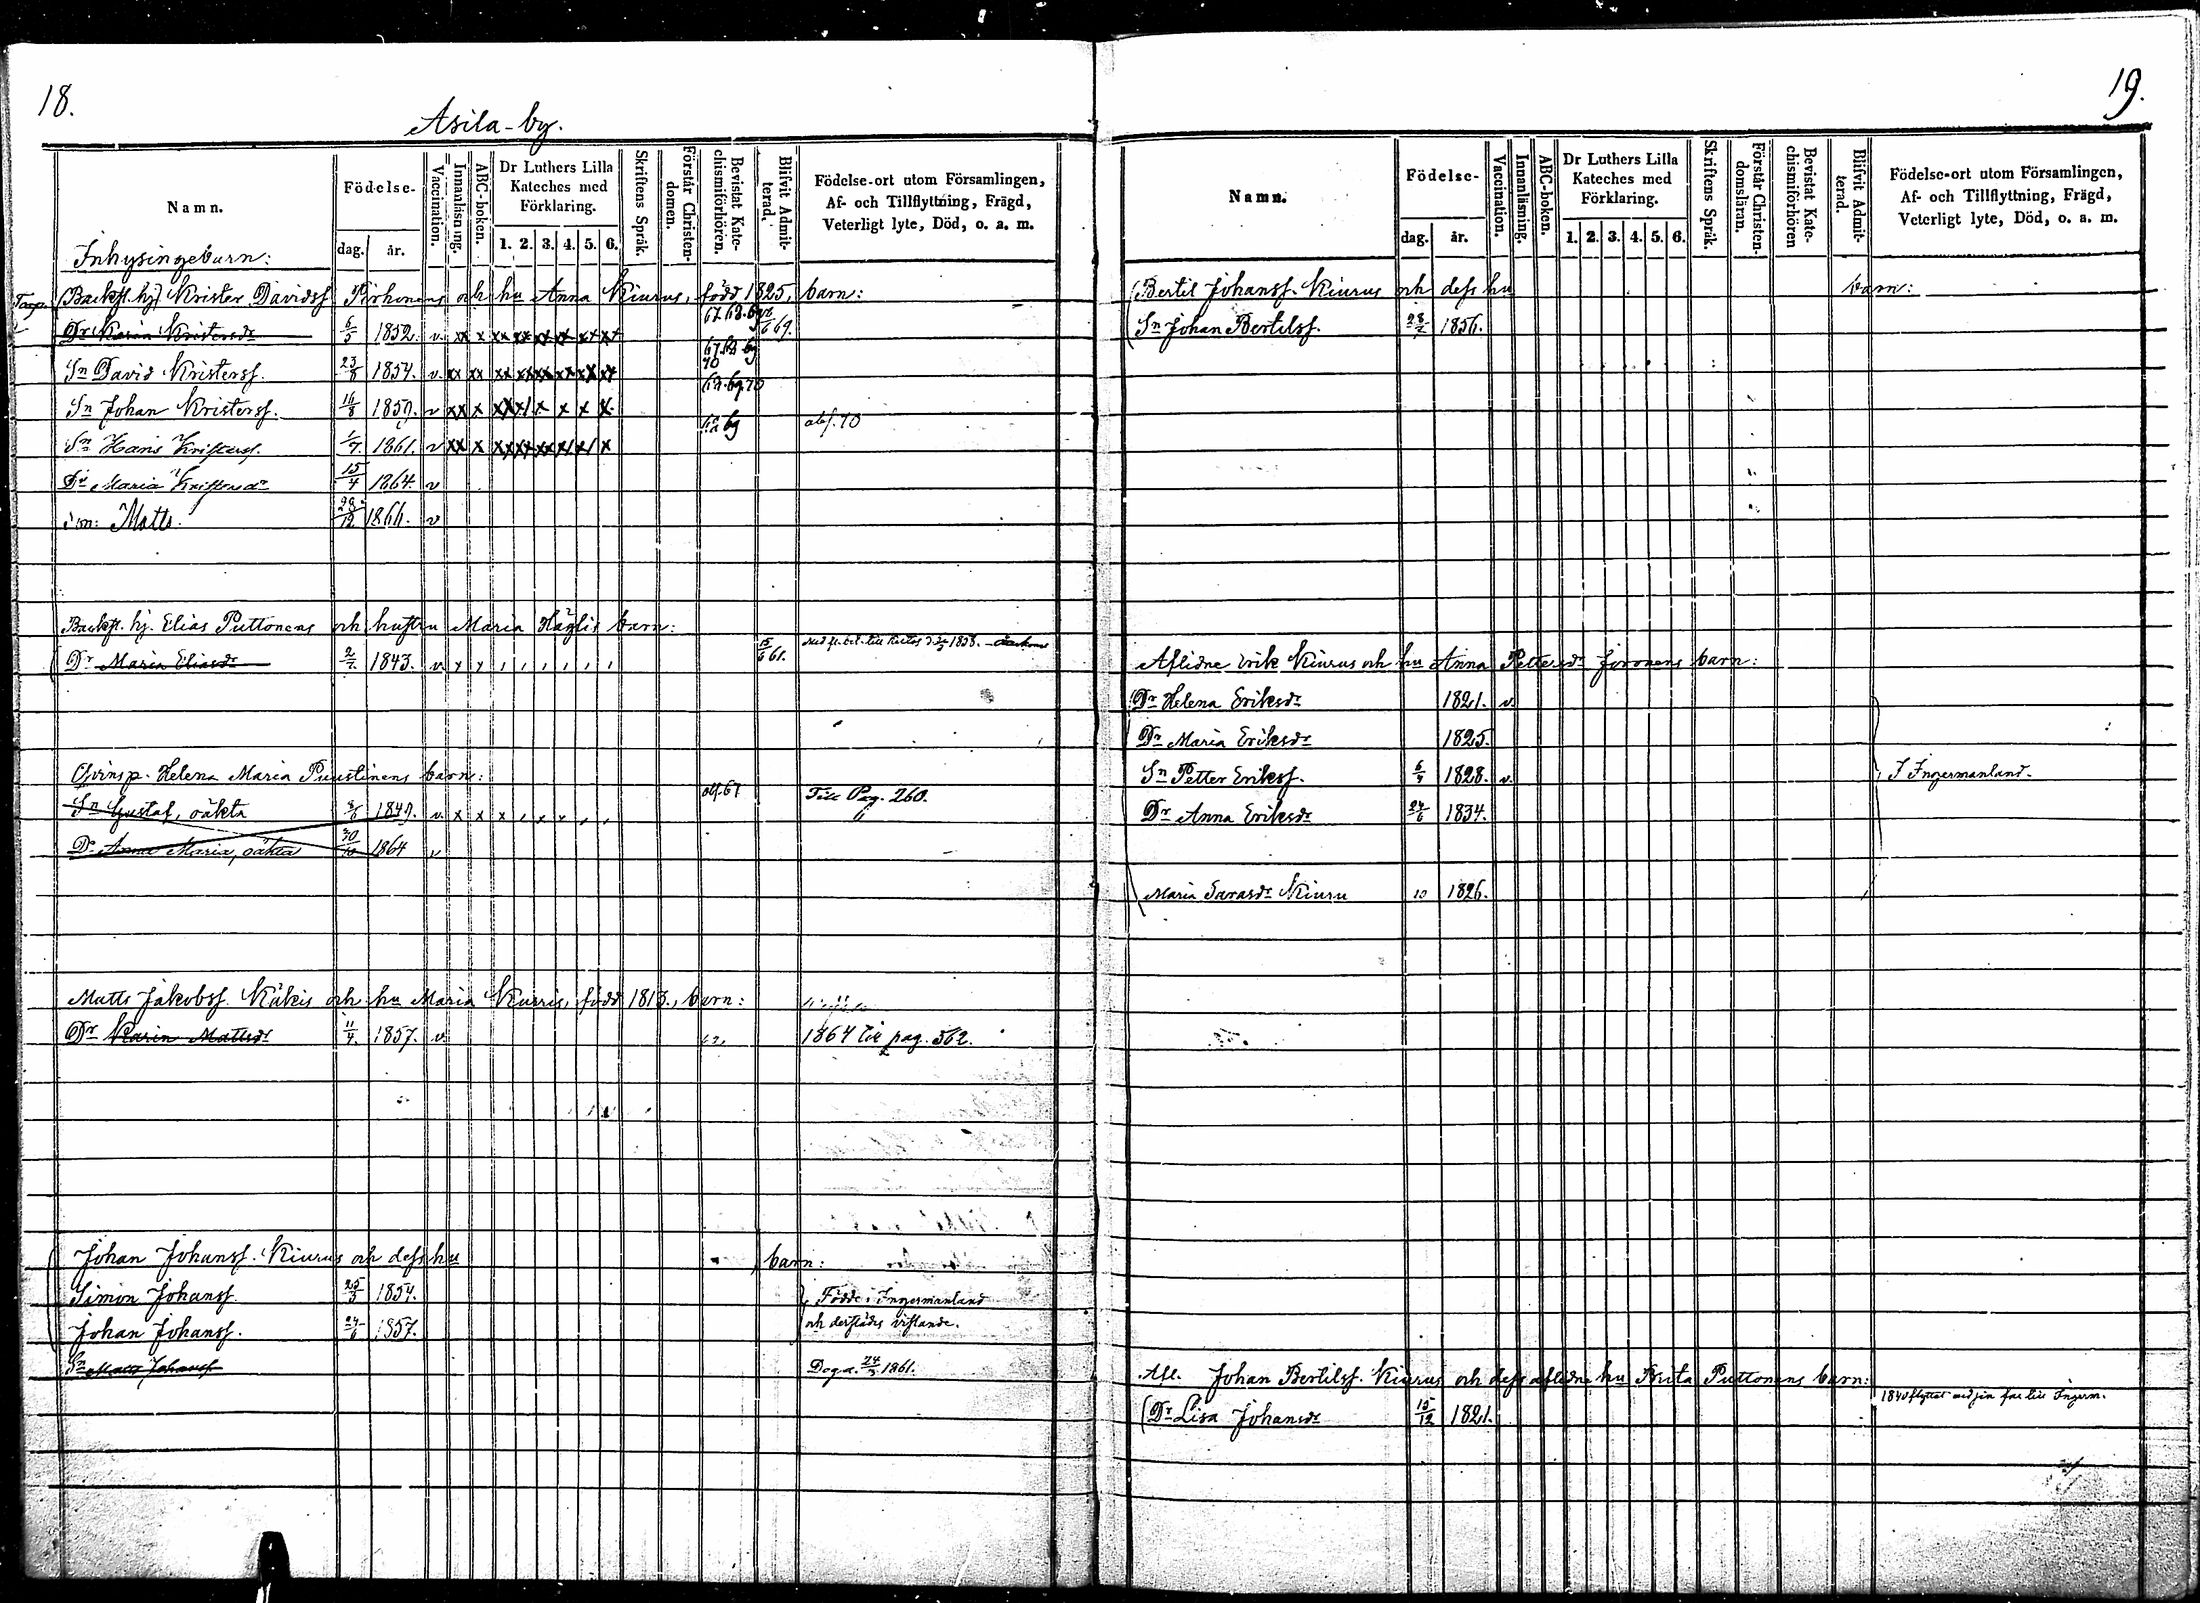 18.
Asila-by.
Namn.
Födelse-
dag.
år.
Vaccination.
Innanläsning.
ABC-boken.
Dr Luthers Lilla Kateches med Förklaring.
1. 2. 3. 4. 5. 6.
Skriftens Språk.
Förstår Christen-domen.
Bevistat Kate-chismiförhören.
Blifvit Admit-terad.
Födelse-ort utom Församlingen,
Af- och Tillflyttning, Frägd,
Veterligt lyte, Död, o. a. m.
Inhysingebarn:
(Backst. hj) Krister Davidsf Pirhonens och hu Anna Kiurus, född 1825, barn:
Dr Maria Kristersdr 6/5 1852. v. xx x
Sn David Kristersf. 23/8 1854. v. xx xx
Sn Johan Kristersf. 16/8 1857. v xx x
Sn Hans Kristersf. 1861. v xx x abs. 70
Dr Maria Kristersdr 15/4 1864. v
son: Matts. 1866. v
Backst. hj. Elias Puttonens och hustru Maria Häglis barn:
Dr Maria Eliasdr 1843. v x x 61.
Qvinsp. Helena Maria Puustinens barn:
Sn Gustaf, oäkta 1849. v x x abs. 67 Till Pag. 260.
Dr Anna Maria, oäkta 1864 v
Matts Jakobsf. Käkis och hu Maria Kurris, född 1813., barn:
Dr Karin Mattsdr 11/4. 1857. v. 1864 till pag. 562.
Johan Johansf. Kiurus och dess hu barn:
Simon Johansf. 1854. Födde i Ingermanland
Johan Johansf. 24/6 1857. och derstädes vistande.
Sn Matts Johansf Död d. 1861.
19.
Namn.
Födelse-
dag.
år.
Vaccination.
Innanläsning.
ABC-boken.
Dr Luthers Lilla Kateches med Förklaring.
1. 2. 3. 4. 5. 6.
Skriftens Språk.
Förstår Christen-domsläran.
Bevistat Kate-chismiförhören
Blifvit Admit-terad.
Födelse-ort utom Församlingen,
Af- och Tillflyttning, Frägd,
Veterligt lyte, Död, o. a. m.
Bertil Johansf. Kiurus och dess hu barn:
Sn Johan Bertilsf. 1856.
Aflidne Erik Kiurus och hu Anna Pettersdr Joronens barn:
Dr Helena Eriksdr 1821. v.
Dr Maria Eriksdr 1825.
Sn Petter Eriksf. 1828. v. I Ingermanland.
Dr Anna Eriksdr 24/6 1834.
Maria Savasdr Kiuru 10 1826.
Afl. Johan Bertilsf. Kiurus och dess aflidne hu Brita Puttonens barn:
(Dr Lisa Johansdr 15/12 1821. 1840 flyttat med sin far till Ingerm.